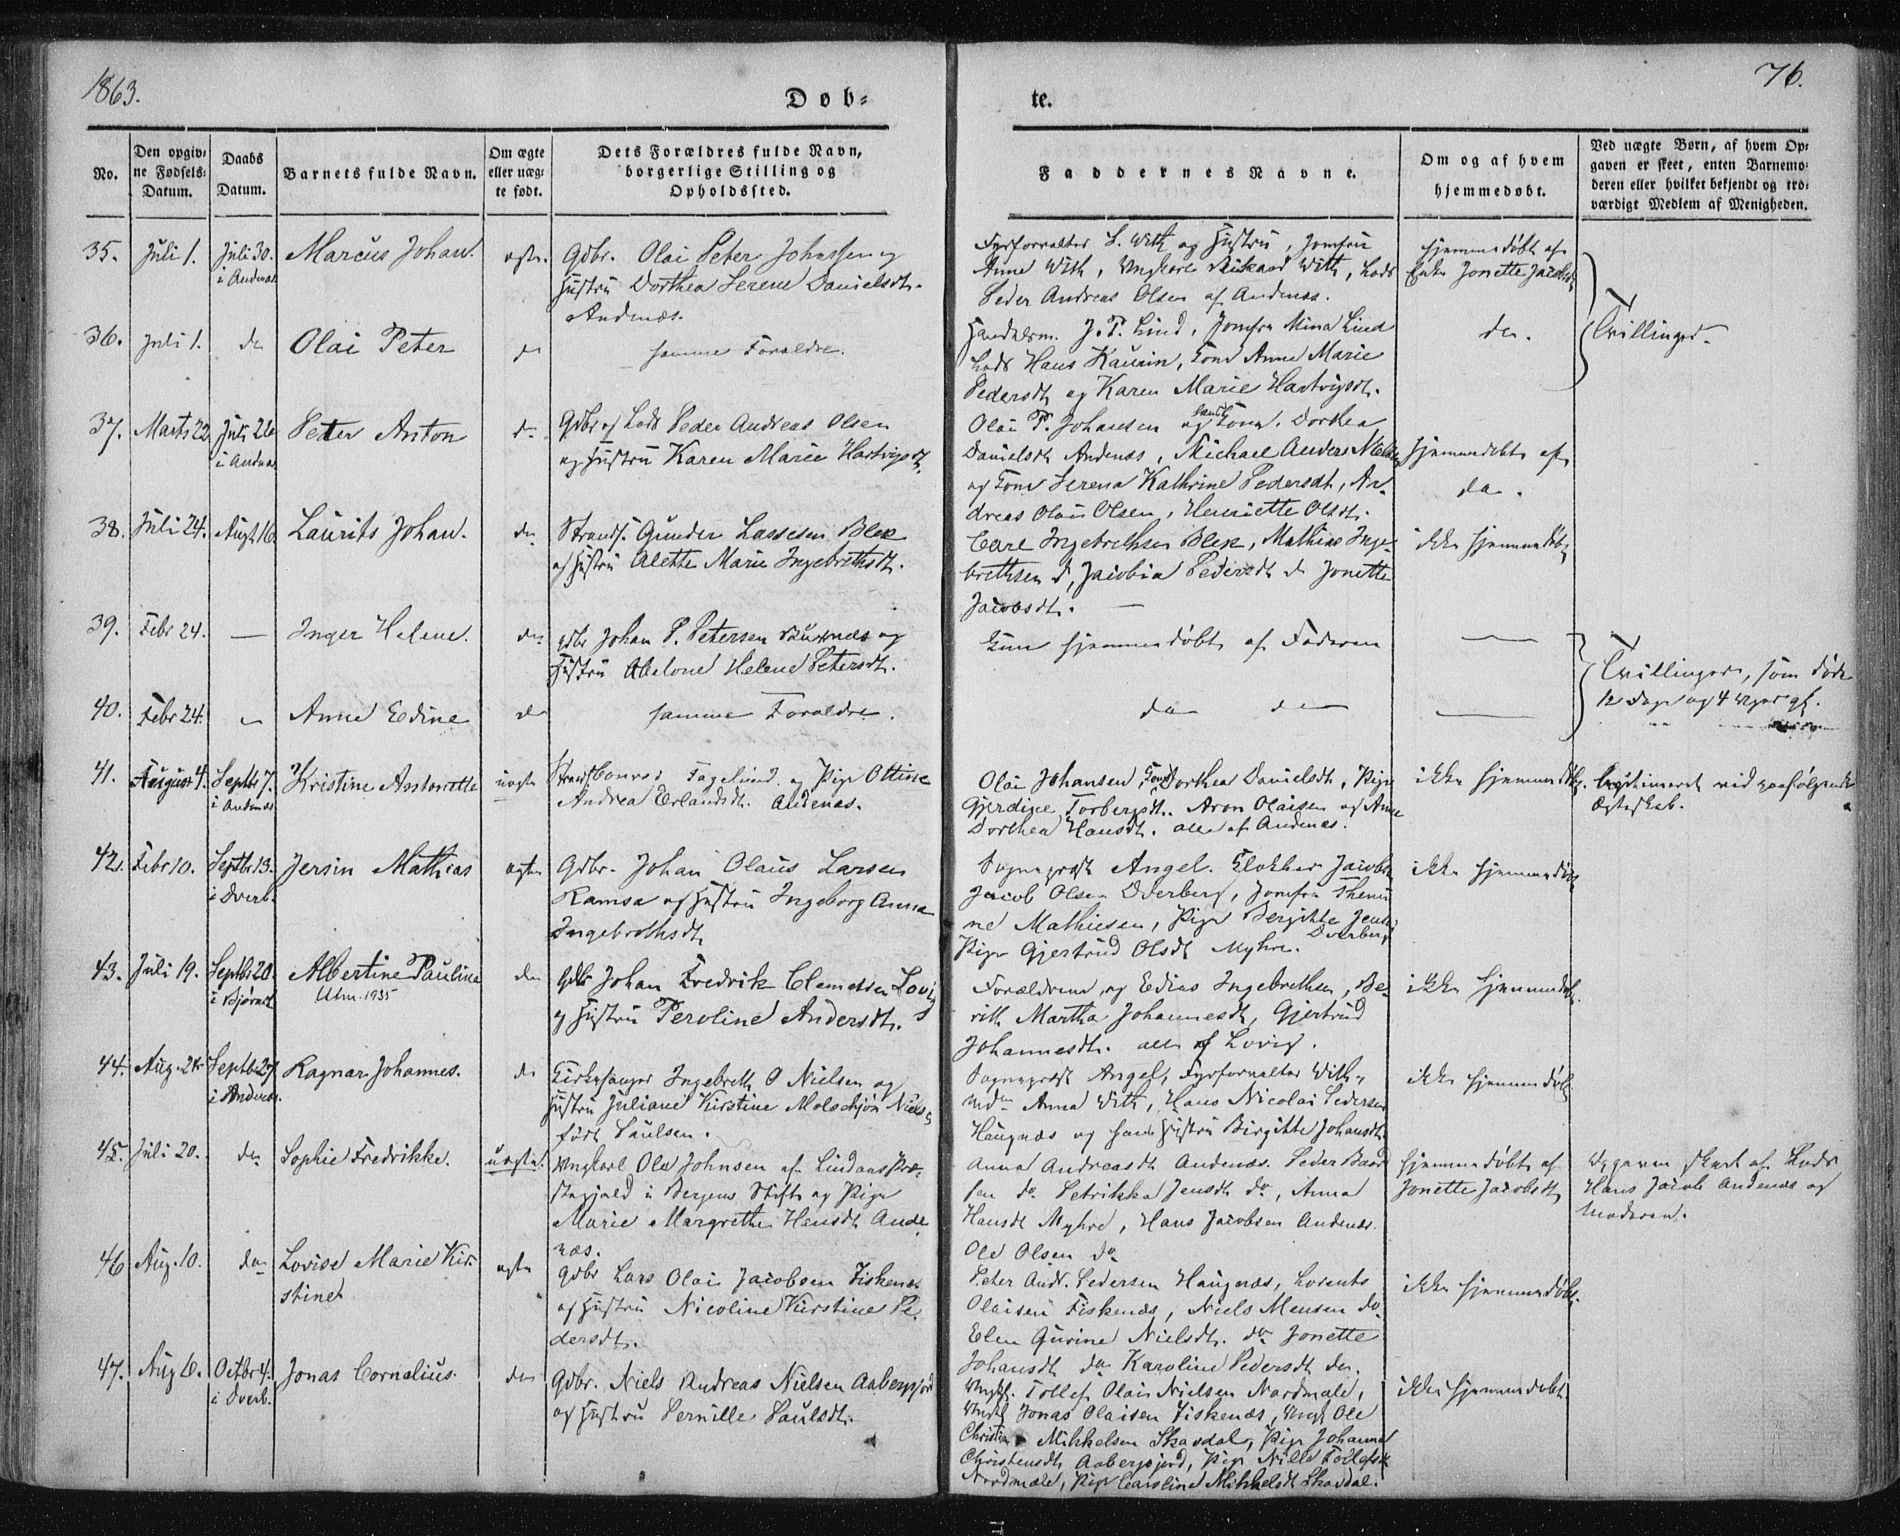 1863.
76.
Døb-
te.
No.
Den opgiv-
ne Fødsels-
Datum.
Daabs
Datum.
Barnets fulde Navn.
Om ægte
eller uæg-
te født.
Dets Forældres fulde Navn,
borgerlige Stilling og
Opholdssted.
Faddernes Navne.
Om og af hvem
hjemmedøbt.
Ved uægte Børn, af hvem Op-
gaven er skeet, enten Barnemo-
deren eller hvilket bekjendt og tro-
værdigt Medlem af Menigheden.
35.
Juli 1.
Juli 30.
i Andenæs
Marcus Johan.
ægte.
Gdbr. Olai Peter Johnssen og
Hustru Dorthea Serene Danielsdt.
Andenæs.
Fyrforvalter L. With og Hustru, Jomfru
Anne With, Ungkarl Rikard With, Lods
Peder Andreas Olsen af Andenæs.
hjemmedøbt af
Enke Jonette Jacobsdt
36.
Juli 1.
do
Olai Peter
do
samme Forældre.
Handelsm. J. P. Lind, Jomfru Mina Lind
Lods Hans Kaurin, Kone Anne Marie
Pedersdt og Karen Marie Hartvigsdt.
do.
Tvillinger.
37.
Marts 22
Juli 26
i Andnæs
Peter Anton
do
Gdbr og Lods Peder Andreas Olsen
og Hustru Karen Marie Hartvigsdt
Olai P. Johansen og Kone Dorthea
Danielsdt Andenæs, Michael Anders
og Kone Serena Kathrine Pedersdt, An-
dreas Olai Olsen, Henriette Olsdt.
hjemmedøbt af
do.
38.
Juli 24.
Augt. 16.
Laurits Johan.
do
Strands. Gunder Lassesen Blek
og Hustru Alette Marie Ingebrethsdt.
Carl Ingebrethsen Blek, Mathias Inge-
brethsen d, Jacobia Pedersdt do Jonette
Jacobsdt.
ikke hjemmedøbt
39.
Febr 24.
—
Inger Helene.
do
Gdbr Johan P. Petersen og
Hustru Abelone Helene Petersdt.
Kun hjemmedøbt af Faderen
—
Tvillinger, som døde
12 Dage og 4 Uger gl.
40.
Febr 24.
—
Anne Edine
do
samme Forældre.
do do
—
41.
August 4.
Septbr 7.
i Andenæs
Kristine Antonette
uægte
Strands Conrad Fagelund og Pige Ottine
Andrea Erlandsdt. Andenæs.
Olai Johansen, Kone Dorthea Danielsdt, Pige
Gjerdine Torbergsdt. Aron Olaisen og Anne
Dorthea Hansdt. alle af Andenæs.
ikke hjemmedøbt.
Legitimeret ved paafølgende
Ægteskab.
42.
Febr 10.
Septbr 13.
i Dverb.
Jersin Mathias
ægte
Gdbr. Johan Olaus Larsen
Ramsa og Hustru Ingeborg Anna
Ingebrethsdt
Sognepræst Angel. Klokker Jacobsen
Jacob Olsen Dverberg, Jomfru
ne Mathiesen, Pige Bergitte Jens
Dverberg
Pige Gjertrud Olsdt Myhre.
ikke hjemmedøbt
43.
Juli 19.
Septbr 20.
i Bjørnsk.
Albertine Pauline
Utm. 1935
do
Gdbr Johan Fredrik Clemetsen Lovig
og Hustru Peroline Andersdt.
Forældrene og Edias Ingebrethsen, Be-
rith Martha Johannesdt, Gjertrud
Johannesdt. alle af Lovig.
ikke hjemmedøbt.
44.
Aug. 24
Septbr 27
i Andenæs
Ragnar Johannes.
do
Kirkesanger Ingebreth O Nielsen og
Hustru Juliane Kirstine Molschjøn Niels
født Paulsen.
Sognepræst Angel, Fyrforvalter With,
Anna With, Hans Nicolai Pedersen
Haugnæs og hans Hustru Birgitte Johansdt.
ikke hjemmedøbt
45.
Juli 20.
do
Sophie Fredrikke.
uægte.
Ungkarl Ole Johnsen af Lindaas Præ-
stegjeld i Bergens Stift og Pige
Marie Margrethe Hansdt Ande-
næs.
Anna Andreasdt Andenæs. Peder Baard
sen do. Petrikka Jensdt do, Anna
Hansdt Myhre, Hans Jacobsen Andenæs.
Ole Olsen do
hjemmedøbt af
Jonette Jacobsdt
Opgaven skeet af Lods
Hans Jacob Andenæs og
Moderen.
46
Aug. 10.
do
Lovise Marie Kir-
stine
ægte
Gdbr Lars Olai Jacobsen Fiskenæs
og Hustru Nicoline Kirstine Pe-
dersdt.
Peter Andr. Pedersen Haugnæs, Lorents
Olaisen Fiskenæs, Niels Monsen do.
Elen Gurine Nielsdt. do Jonette
Johansdt do Karoline Pedersdt do.
ikke hjemmedøbt.
47.
Aug 6.
Octbr 4.
i Dverb.
Jonas Cornelius.
do
Gdbr. Niels Andreas Nielsen Aabergsjord
og Hustru Pernille Paulsdt.
Ungk. Tollef Olai Nielsen Nordmæle,
Ungk Jonas Olaisen Fiskenæs, Ungk Ole
Christian Mikkelsen Skavdal, Pige Johanna
Christensdt Aabergsjord, Pige Nille Tollefsdt
Nordmæle, Pige Caroline Mikkelsdt Skavdal.
ikke hjemmedøbt